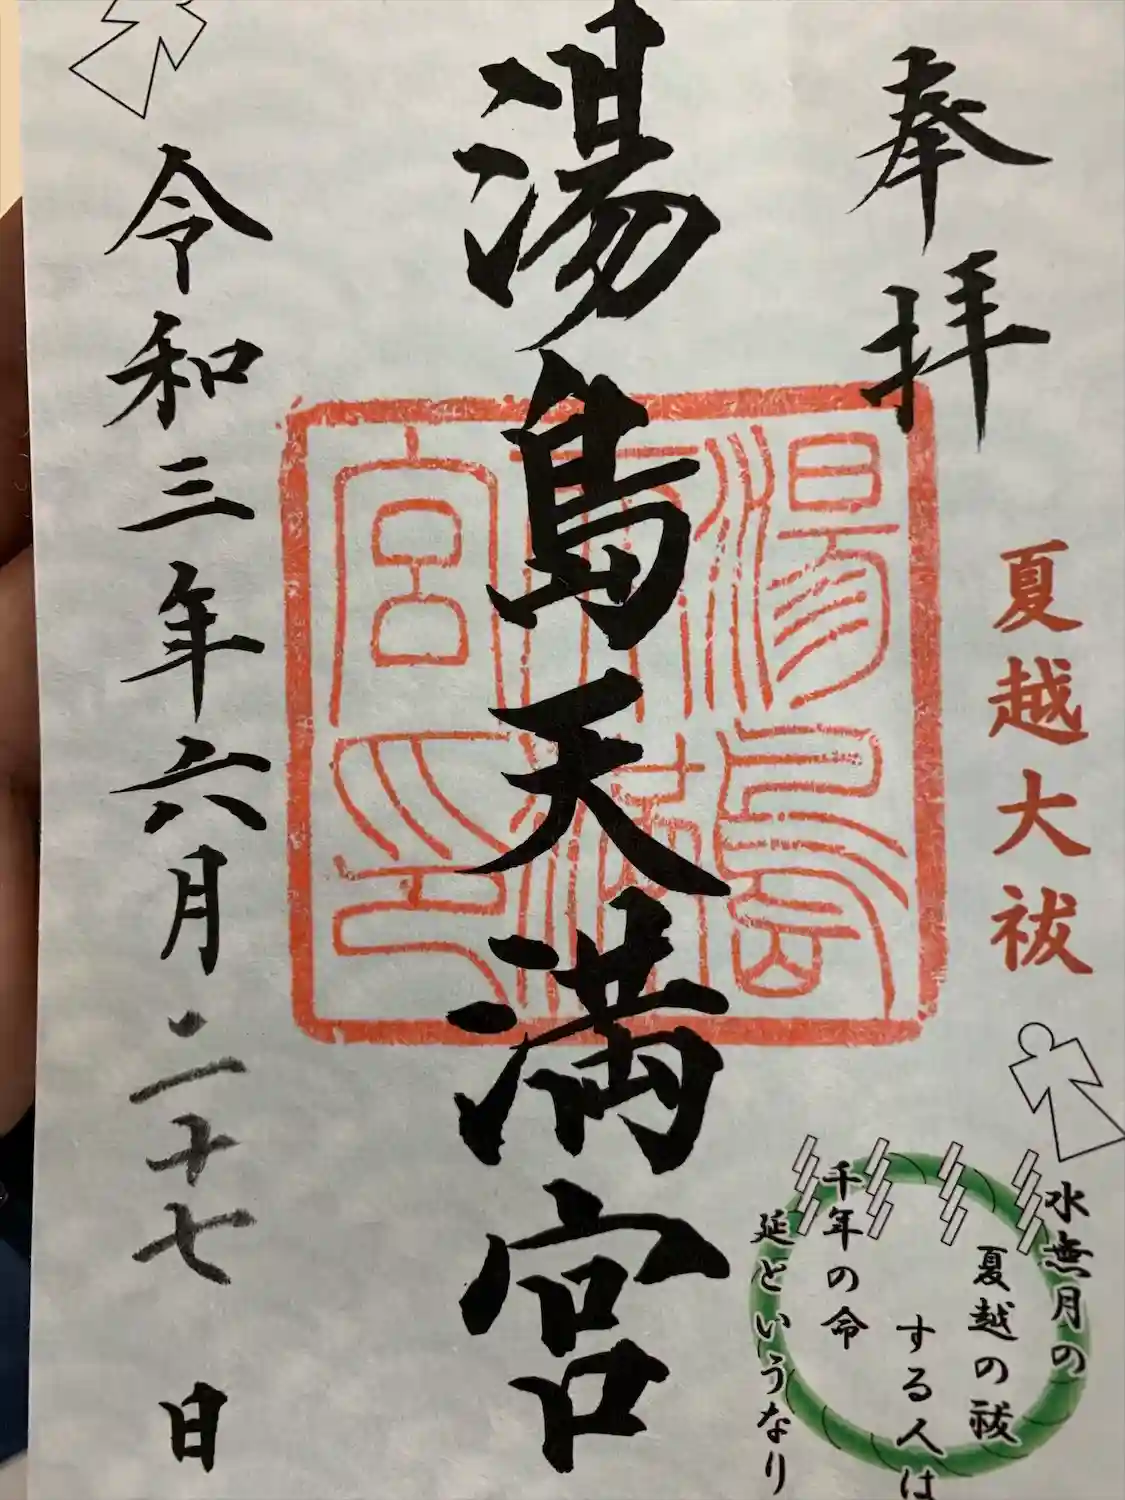 奉拝
夏越大祓
水無月の
夏越の祓
する人は
千年の命
延というなり
湯島天満宮
湯島天神宮印
令和三年六月二十七日